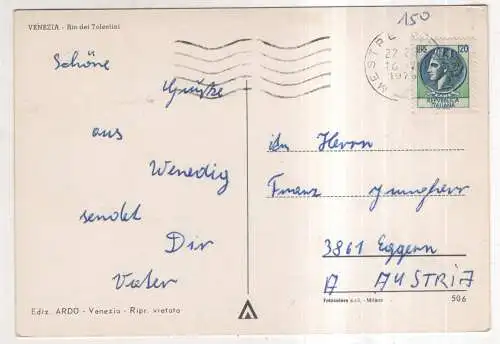 VENEZIA - Rio dei Tolentini
150
Schöne
Grüße
aus
Wenedig
sendet
Dir
Vater
MESTRE
1976
LIRE 120
REPVBBLICA
ITALIANA
An Herrn
Franz Jungherr
3861 Eggern
A AUSTRIA
Ediz. ARDO - Venezia - Ripr. vietata
Fotocolore s.r.l. - Milano
506